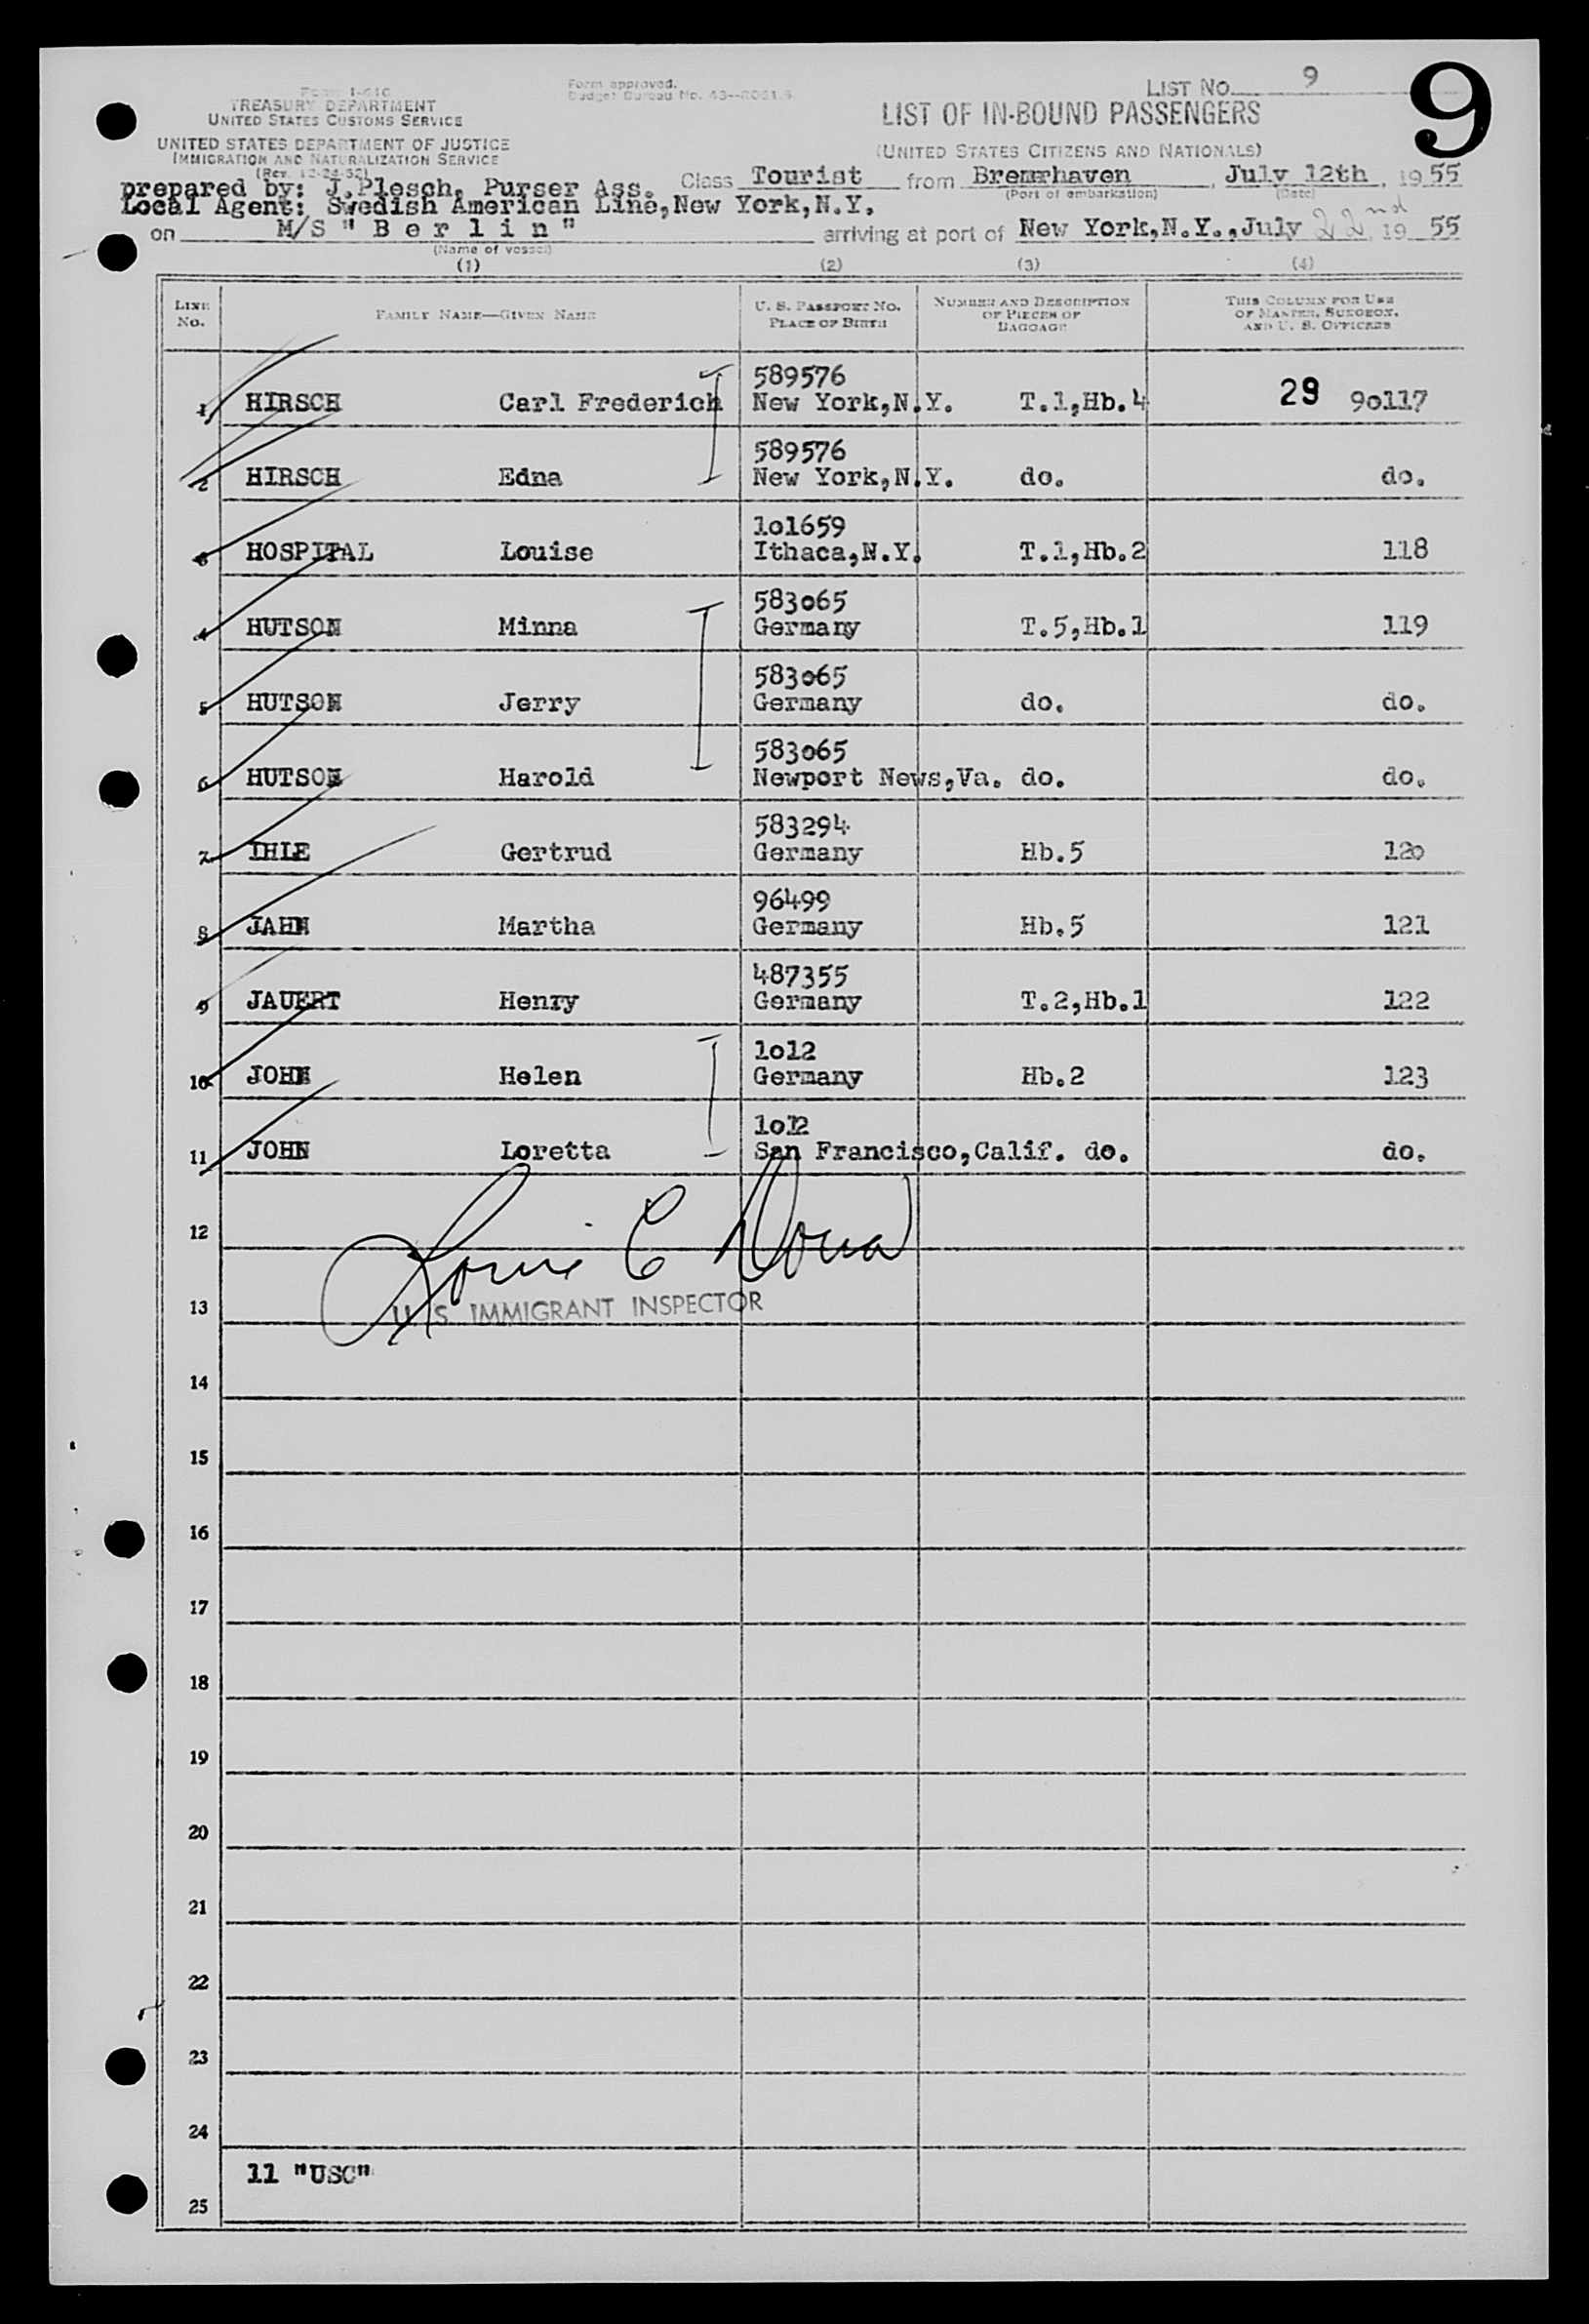 LIST No. 9
9
Form I-418
Form approved.
Budget Bureau No. 43-
TREASURY DEPARTMENT
UNITED STATES CUSTOMS SERVICE
LIST OF IN-BOUND PASSENGERS
UNITED STATES DEPARTMENT OF JUSTICE
IMMIGRATION AND NATURALIZATION SERVICE
(UNITED STATES CITIZENS AND NATIONALS)
(Rev. 12-24-52)
prepared by: J.Plesch, Purser Ass. Class Tourist from Bremerhaven, July 12th, 1955
(Port of embarkation) (Date)
Local Agent: Swedish American Line,New York,N.Y.
on M/S "Berlin" arriving at port of New York,N.Y.,July 22nd 1955
(Name of vessel)
(1) (2) (3) (4)
LINE No. FAMILY NAME—GIVEN NAME U. S. PASSPORT NO. PLACE OF BIRTH NUMBER AND DESCRIPTION OF PIECES OF BAGGAGE THIS COLUMN FOR USE OF MASTER, SURGEON, AND U. S. OFFICERS
589576
1 HIRSCH Carl Frederich New York,N.Y. T.1,Hb.4 29 9o117
589576
2 HIRSCH Edna New York,N.Y. do. do.
1o1659
3 HOSPITAL Louise Ithaca,N.Y. T.1,Hb.2 118
583o65
4 HUTSON Minna Germany T.5,Hb.1 119
583o65
5 HUTSON Jerry Germany do. do.
583o65
6 HUTSON Harold Newport News,Va. do. do.
583294
7 IHLE Gertrud Germany Hb.5 12o
96499
8 JAHN Martha Germany Hb.5 121
487355
9 JAUERT Henry Germany T.2,Hb.1 122
1o12
10 JOHN Helen Germany Hb.2 123
1o12
11 JOHN Loretta San Francisco,Calif. do. do.
12
13 U. S. IMMIGRANT INSPECTOR
14
15
16
17
18
19
20
21
22
23
24
11 "USC"
25